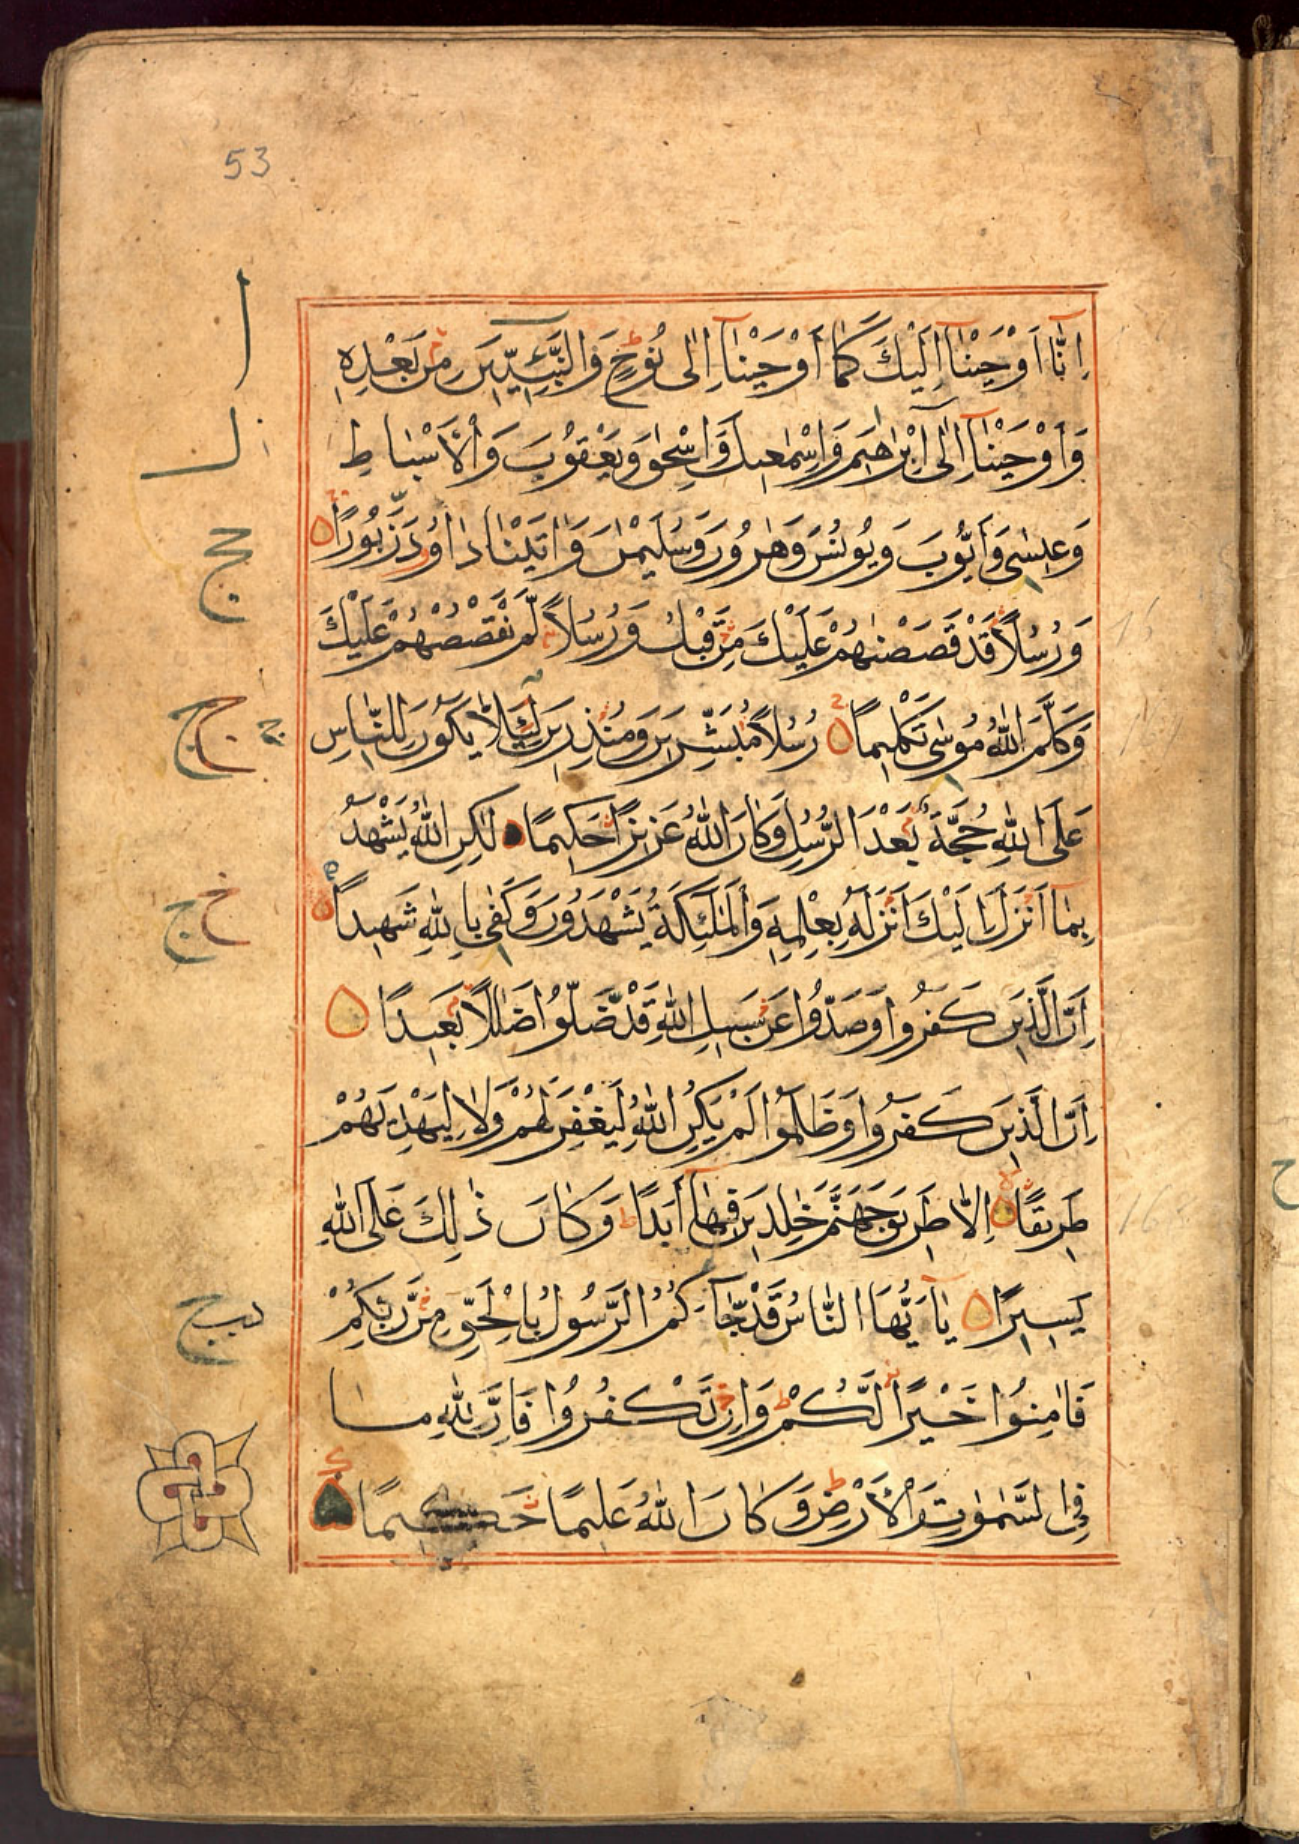 53
اِنَّا اَوْحَيْنَا اِلَيْكَ كَمَا اَوْحَيْنَا اِلٰى نُوْحٍ وَالنَّبِيّٖنَ مِنْ بَعْدِهٖ
وَاَوْحَيْنَا اِلٰى اِبْرٰهٖيمَ وَاِسْمٰعٖيلَ وَاِسْحٰقَ وَيَعْقُوْبَ وَالْاَسْبَاطِ
وَعٖيسٰى وَاَيُّوْبَ وَيُوْنُسَ وَهٰرُوْنَ وَسُلَيْمٰنَ وَاٰتَيْنَا دَاوُدَ زَبُوْرًا
وَرُسُلًا قَدْ قَصَصْنٰهُمْ عَلَيْكَ مِنْ قَبْلُ وَرُسُلًا لَّمْ نَقْصُصْهُمْ عَلَيْكَ
وَكَلَّمَ اللّٰهُ مُوْسٰى تَكْلٖيمًا رُسُلًا مُّبَشِّرٖينَ وَمُنْذِرٖينَ لِئَلَّا يَكُوْنَ لِلنَّاسِ
عَلَى اللّٰهِ حُجَّةٌ بَعْدَ الرُّسُلِ وَكَانَ اللّٰهُ عَزٖيزًا حَكٖيمًا لٰكِنِ اللّٰهُ يَشْهَدُ
بِمَا اَنْزَلَ اِلَيْكَ اَنْزَلَهُ بِعِلْمِهٖ وَالْمَلٰئِكَةُ يَشْهَدُوْنَ وَكَفٰى بِاللّٰهِ شَهٖيدًا
اِنَّ الَّذٖينَ كَفَرُوا وَصَدُّوا عَنْ سَبٖيلِ اللّٰهِ قَدْ ضَّلُّوا ضَلٰلًا بَعٖيدًا
اِنَّ الَّذٖينَ كَفَرُوا وَظَلَمُوا لَمْ يَكُنِ اللّٰهُ لِيَغْفِرَ لَهُمْ وَلَا لِيَهْدِيَهُمْ
طَرٖيقًا اِلَّا طَرٖيقَ جَهَنَّمَ خٰلِدٖينَ فٖيهَا اَبَدًا وَكَانَ ذٰلِكَ عَلَى اللّٰهِ
يَسٖيرًا يٰا اَيُّهَا النَّاسُ قَدْ جَّاءَكُمُ الرَّسُوْلُ بِالْحَقِّ مِنْ رَّبِّكُمْ
فَاٰمِنُوا خَيْرًا لَّكُمْ وَاِنْ تَكْفُرُوا فَاِنَّ لِلّٰهِ مَا
فِي السَّمٰوٰتِ وَالْاَرْضِ وَكَانَ اللّٰهُ عَلٖيمًا حَكٖيمًا